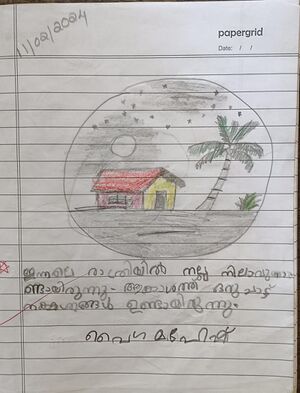 papergrid
11/02/2024
Date: / /
ഇന്നലെ രാത്രിയിൽ നല്ല നിലാവുണ്ടാ
ണ്ടായിരുന്നു. ആകാശത്ത് ഒരുപാട്
നക്ഷത്രങ്ങൾ ഉണ്ടായിരുന്നു.
വൈഗ മഹേഷ്